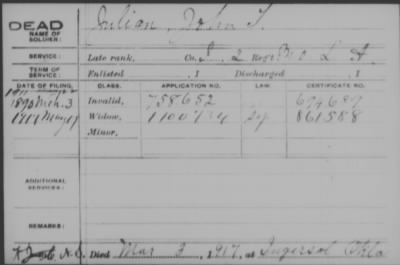 DEAD
NAME OF SOLDIER: Julian, John T.
SERVICE: Late rank, Co. I, 2 Reg't Mo L A.
TERM OF SERVICE: Enlisted , 1 Discharged , 1
DATE OF FILING. CLASS. APPLICATION NO. LAW. CERTIFICATE NO.
1890 Mch. 3 Invalid, 758652
Widow, 1100724 861588
Minor,
ADDITIONAL SERVICES:
REMARKS:
Died Mar 3, 1917, at Ingersol Okla